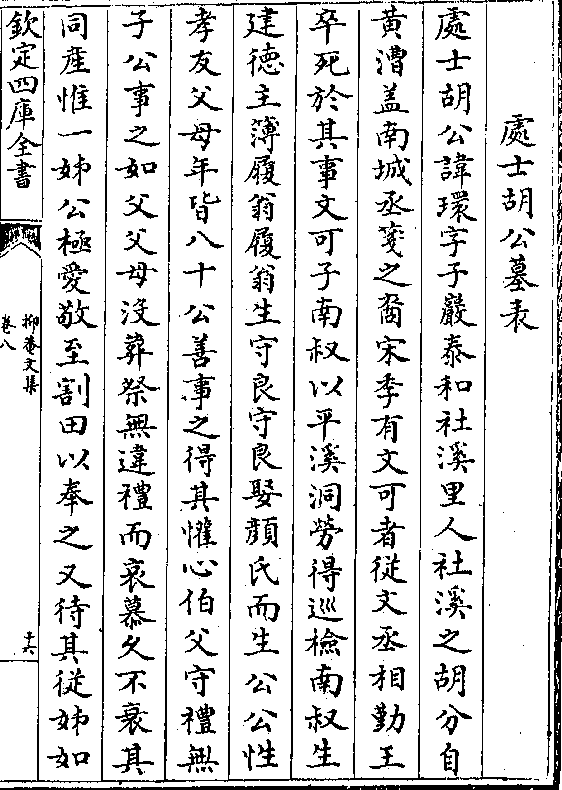 處士胡公墓表
處士胡公諱環字子嚴泰和社溪里人社溪之胡分自
黄漕盖南城丞箋之裔宋季有文可者從文丞相勤王
卒死於其事文可子南叔以平溪洞勞得巡檢南叔生
建德主簿履翁履翁生守良守良娶顔氏而生公公性
孝友父母年皆八十公善事之得其懽心伯父守禮無
子公事之如父父母没葬祭無違禮而哀慕久不衰其
同産惟一姊公極愛敬至割田以奉之又待其從姊如
欽定四庫全書
抑菴文集
卷八
十六